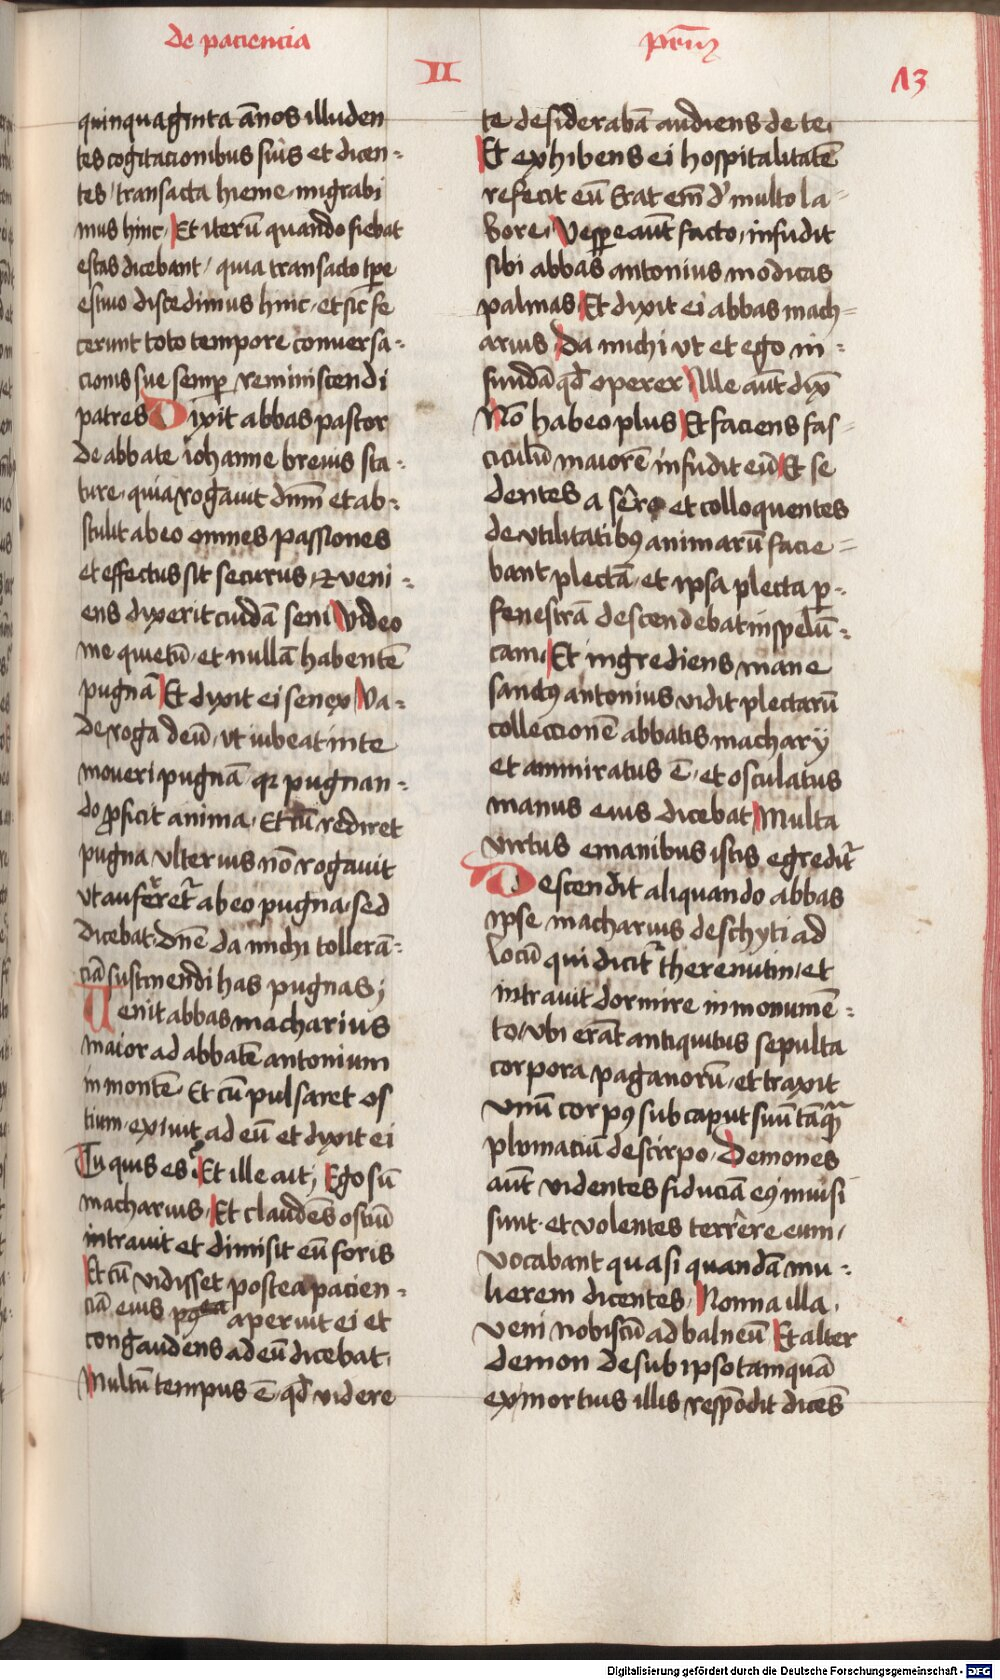 de paciencia
prim9
II
13
quinquaginta ānos illuden
tes cogitacionibus suis et dicen=
tes / transacta hieme migrabi
mus hinc. Et iterū quando fiebat
estas dicebant / quia transacto tpe
estiuo discedimus hinc. et sic fe
cerunt toto tempore conuersa=
cionis sue semp reminiscendi
patres Dixit abbas pastor
de abbate iohanne breuis sta=
ture. quia rogauit dnm et ab=
stulit ab eo omnes passiones
et effectus sit securus, et veni=
ens dixerit cuidā seni Video
me quietū. et nullā habentē
pugnā Et dixit ei senex Va=
de roga deū. vt iubeat in te
moueri pugnā. qr pugnan=
do pficit anima. Et cū rediret
pugna vlterius nō rogauit
vt auferet ab eo pugna. sed
dicebat. dnē da michi tollerā=
ciā sustinendi has pugnas;
Uenit abbas macharius
maior ad abbatē antonium
in montē. Et cū pulsaret os
tium. exiuit ad eū et dixit ei
Tu quis es? Et ille ait; Ego sū
macharius. Et claudēs ostiū
intrauit et dimisit eū foris
Et cū vidisset postea pacien=
ciā eius aperuit ei et
congaudens ad eū dicebat.
Multū tempus ē. qd videre
te desiderabā audiens de te.
Et exhibens ei hospitalitatē
refecit eū Erat em d' multo la=
bore. Vespe aut facto. infudit
sibi abbas antonius modicas
palmas Et dixit ei abbas mach=
arius Da michi vt et ego in=
fundā qd operer Ille aut dix
Nō habeo plus Et faciens fas=
ciculū maiorē infudit eū Et se
dentes a sēro et colloquentes
de vtilitatib9 animarū facie=
bant plectā. et ipsa plecta p=
fenestrā descendebat in spelū=
cam. Et ingrediens mane
sanct9 antonius vidit plectarū
colleccionē abbatis machary
et ammiratus ē. et osculatus
manus eius dicebat Multa
virtus emanibus istis egredit
Descendit aliquando abbas
ipse macharius de schyti ad
locū qui dicit therenutin. et
intrauit dormire in monumē=
to. vbi erāt antiquitus sepulta
corpora paganorū. et traxit
vnū corp9 sub caput suū tāqm
plumaciū de scirpo. Demones
aut videntes fiduciā ei9 inuisi
sunt. et volentes terrēre eum.
vocabant quasi quandā mu=
lierem dicentes. Nonna illa.
veni nobiscū ad balneū Et alter
demon desub ipso tamquā
ex mortuis illis respōdit dicēs
Digitalisierung gefördert durch die Deutsche Forschungsgemeinschaft - DFG